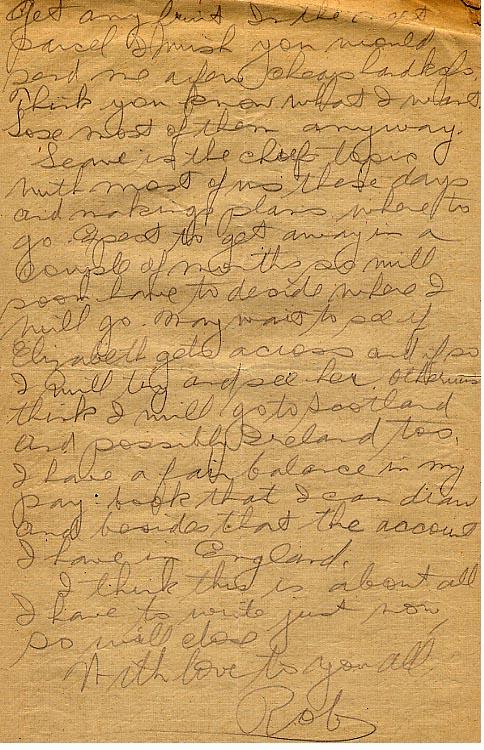 Get any fruit In the next
parcel I wish you would
send me a few cheap handkfs.
Think you know what I want.
Lose most of them anyway.
Leave is the chief topic
with most of us these days
and making plans where to
go. Expect to get away in a
couple of months so will
soon have to decide where I
will go. May wait to see if
Elizabeth gets across and if so
I will try and see her, otherwise
think I will go to Scotland
and possibly Ireland too.
I have a fair balance in my
pay book that I can draw
and besides that the account
I have in England.
I think this is about all
I have to write just now
so will close
With love to you all.
Rob